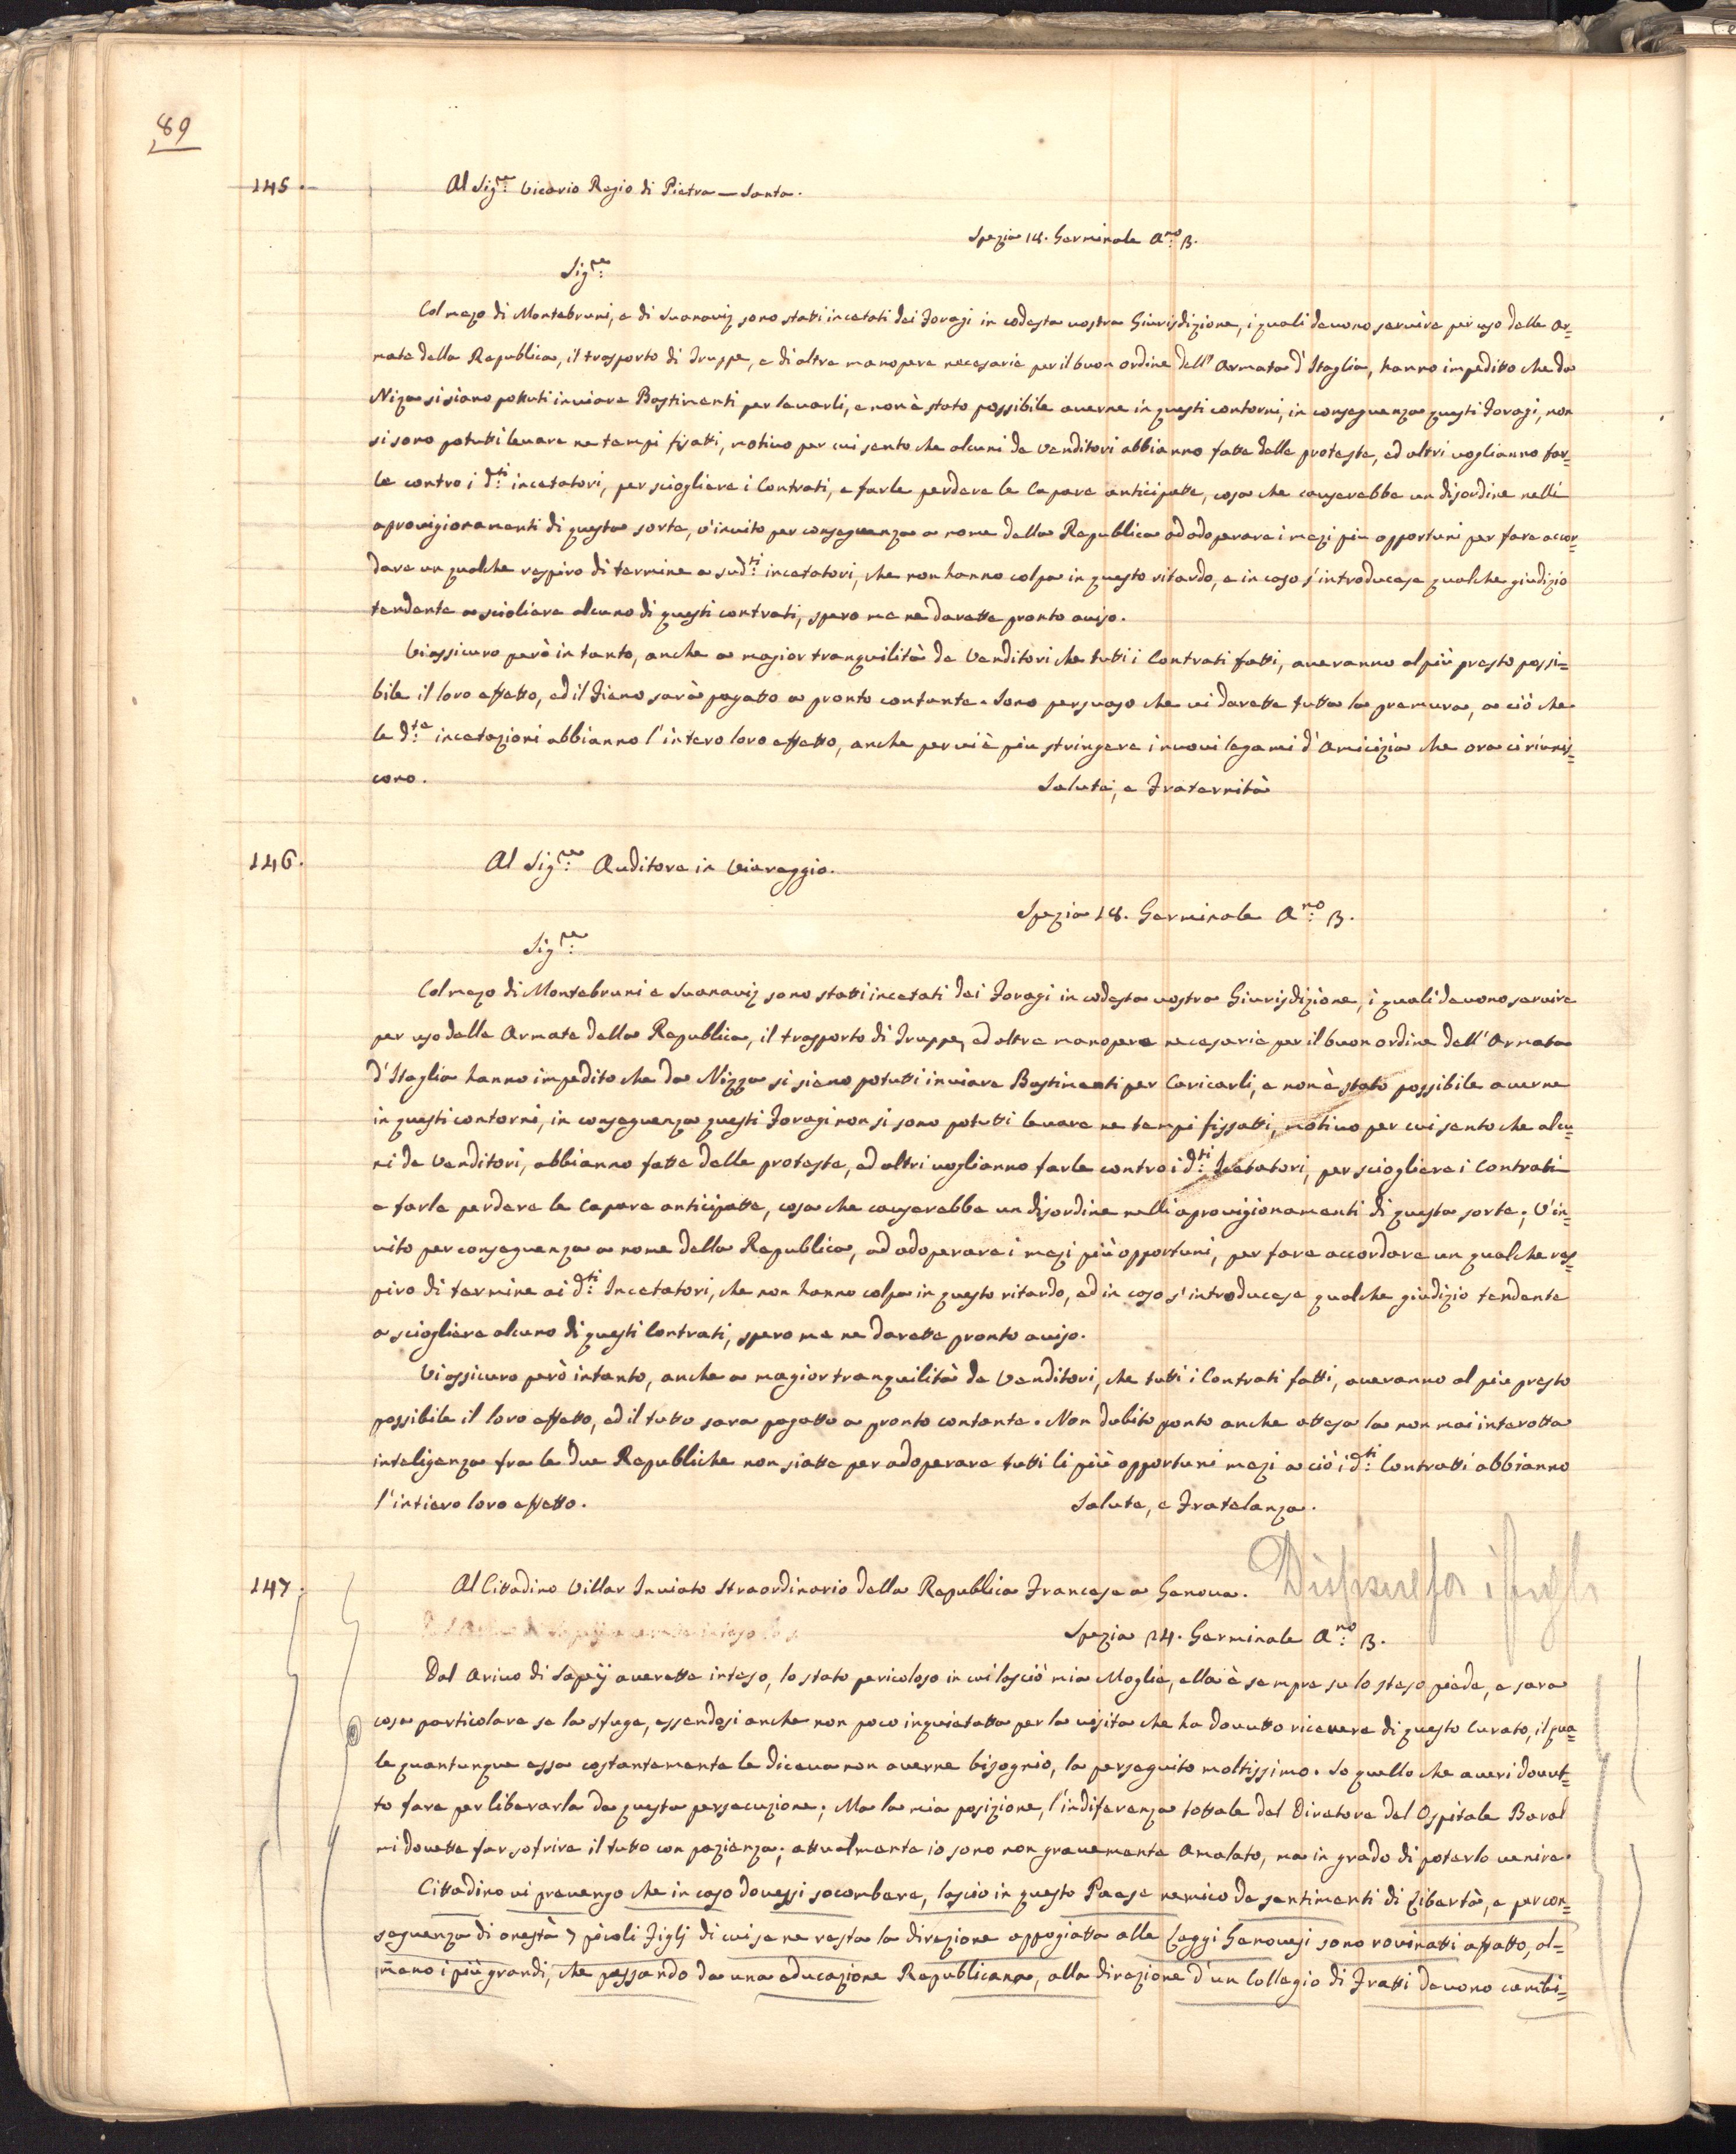 89
145.
Al Sig.re Vicario Regio di Pietra-Santa.
Spezia 18. Germinale A.no 3.
Sig.re
Col mezo di Montebruni, e di Suanaviz sono stati incetati dei Foragi in codesta vostra Giurisdizione, i quali devono servire per uso delle Ar=
mate della Republica, il trasporto di Truppe, e di altre manopere necesarie per il buon ordine dell' Armata d'Itaglia, hanno impeditto che da
Niza si siano pottuti inviare Bastimenti per levarli, e non è stato possibile averne in questi contorni, in conseguenza questi Foragi, non
si sono potutti levare ne tempi fisatti, motivo per cui sento che alcuni de Venditori abbianno fatte delle proteste, ed altri voglianno far=
le contro i d.ti incetatori, per sciogliere i Contrati, e farle perdere le Capare anticipatte, cosa che causerebbe un disordine nelli
aprovigionamenti di questa sorte, v'invito per conseguenza a nome della Republica ad adoperare i mezi piu opportuni per fare accor=
dare un qualche respiro di termine a sud.ti incetatori, che non hanno colpa in questo ritardo, e in caso s'introducese qualche giudizio
tendente a scioliere alcuno di questi contrati, spero me ne darette pronto aviso.
Vi assicuro però in tanto, anche a magior tranquilità de Venditori che tutti i Contrati fatti, averanno al più presto possi=
bile il loro effetto, ed il Fieno sarà pagatto a pronto contante. Sono persuaso che vi darette tutta la premura, a ciò che
le d.te incetazioni abbianno l'intero loro effetto, anche per viè piu stringere i nuovi legami d'Amicizia che ora ci riunis=
cono.
Salute, e Fraternità
146.
Al Sig.re Auditore in Viareggio.
Spezia 18. Germinale A.no 3.
Sig.re
Col mezo di Montebruni e Suanaviz sono statti incetati dei Foragi in codesta vostra Giurisdizione, i quali devono servire
per uso delle Armate della Republica, il trasporto di Truppe, ed altre manopere necesarie per il buon ordine dell' Armata
d'Itaglia hanno impedito che da Nizza si sieno potutti inviare Bastimenti per Caricarli, e non è stato possibile averne
in questi contorni, in conseguenza questi Foragi non si sono potutti levare ne tempi fissatti, motivo per cui sento che alcu=
ni de Venditori, abbianno fatte delle proteste, ed altri voglianno farle contro i d.ti Icetatori, per sciogliere i Contrati
e farle perdere le Capare anticipatte, cosa che causerebbe un disordine nelli aprovigionamenti di questa sorte; V'in=
vito per conseguenza a nome della Republica, ad adoperare i mezi più opportuni, per fare accordare un qualche res=
piro di termine ai d.ti Incetatori, che non hanno colpa in questo ritardo, ed in caso s'introducese qualche giudizio tendente
a sciogliere alcuno di questi Contrati, spero me ne darette pronto aviso.
Vi assicuro però intanto, anche a magior tranquilità de Venditori, che tutti i Contrati fatti, averanno al piu presto
possibile il loro effetto, ed il tutto sara pagatto a pronto contante. Non dubito ponto anche attesa la non mai interotta
inteligenza fra le due Republiche non siatte per adoperare tutti li più opportuni mezi a ciò i d.ti Contratti abbianno
l'intiero loro effetto.
Salute, e Fratelanza.
147.
Al Cittadino Villar Inviato Straordinario della Republica Francese a Genova.
Spezia 24. Germinale A.no 3.
Dal Arivo di Sapeÿ averette inteso, lo stato pericoloso in cui lasciò mia Moglie, ella è sempre su lo steso piede, e sara
cosa particolare se la sfuge, essendosi anche non poco inquietatta per la visita che ha dovutto ricevere di questo Curato, il qua=
le quantunque essa costantemente le diceva non averne bisognio, la perseguito moltissimo. So quello che averi dovut=
to fare per liberarla da questa persecuzione; Ma la mia posizione, l'indiferenza tottale del Diretore del Ospitale Baral
mi dovette far sofrire il tutto con pazienza; attualmente io sono non gravemente Amalato, ma in grado di poterlo venire.
Cittadino vi prevengo che in caso dovessi socombere, lascio in questo Paese nemico de sentimenti di Libertà, e per con=
seguenza di onestà 7 picoli Figlj di cui se ne resta la direzione appogiatta alle Leggi Genovesi sono rovinatti affatto, al=
meno i più grandi, che passando da una educazione Republicana, alla direzione d'un Collegio di Fratti devono cambi=